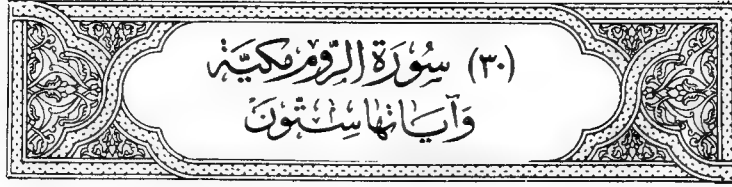 (٣٠) سُورَةُ الرُّومِ مَكيَّة
وَآيَاتُهَا سِتُّونَ